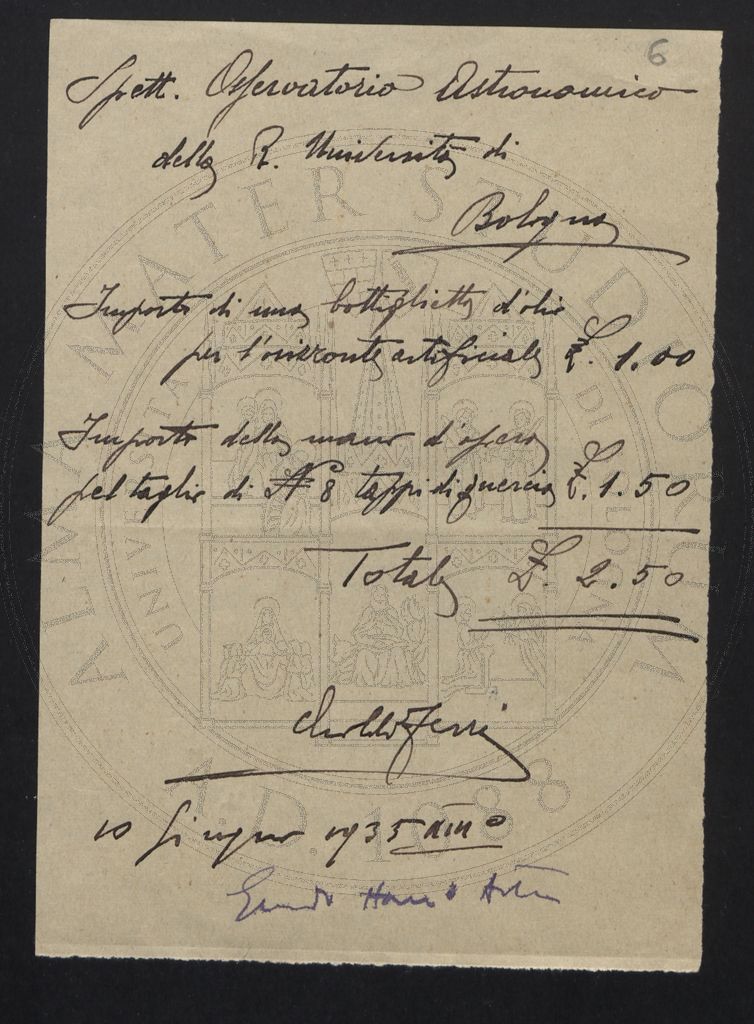 6
Spett. Osservatorio Astronomico
della R. Università di
Bologna
Importo di una bottiglietta d'olio
per l'orizzonte artificiale £. 1.00
Importo della mano d'opera
pel taglio di N° 8 tappi di quercia £. 1.50
Totale £. 2.50
Ferri
10 Giugno 1935 XIII°
ALMA MATER STUDIORUM
UNIVERSITÀ DI BOLOGNA
A.D. 1088